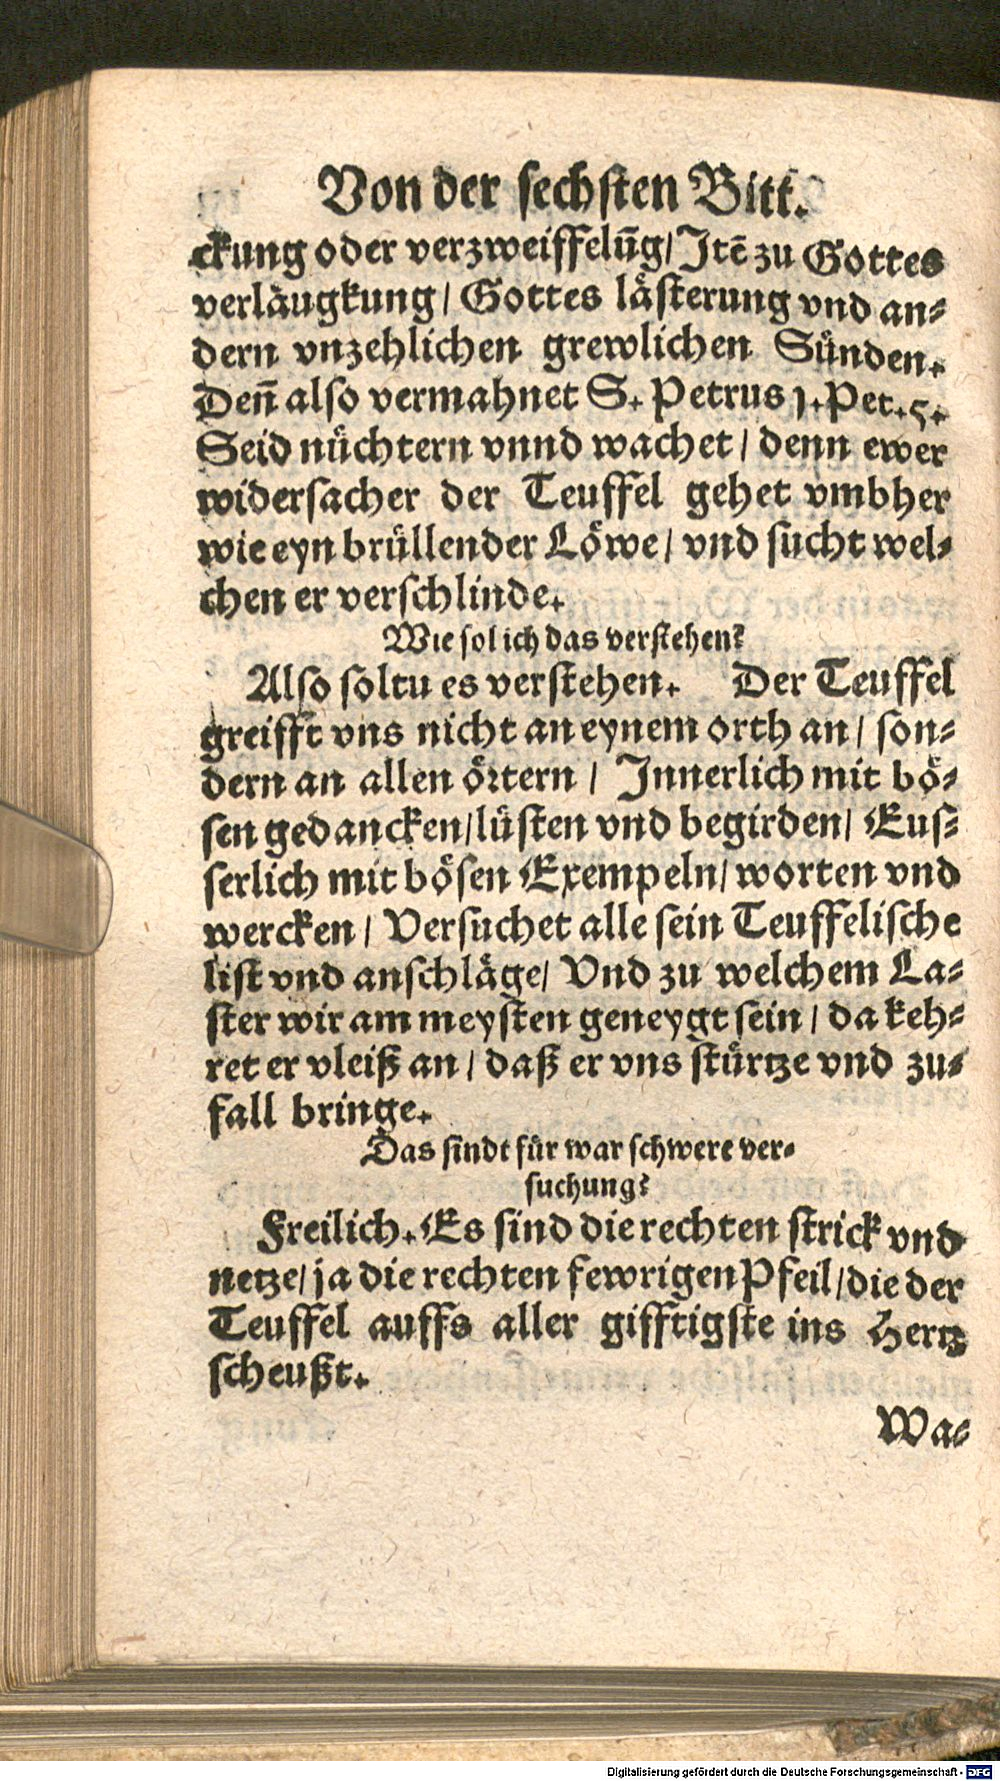 Von der sechsten Bitt.
ckung oder verzweiffelūg/ Itē zu Gottes
verläugkung/ Gottes lästerung vnd an⸗
dern vnzehlichen grewlichen Sünden.
Deñ also vermahnet S. Petrus 1. Pet. 5.
Seid nüchtern vnnd wachet/ denn ewer
widersacher der Teuffel gehet vmbher
wie eyn brüllender Löwe/ vnd sucht wel⸗
chen er verschlinde.
Wie sol ich das verstehen?
Also soltu es verstehen. Der Teuffel
greifft vns nicht an eynem orth an/ son⸗
dern an allen örtern/ Innerlich mit bö⸗
sen gedancken/ lüsten vnd begirden/ Eus⸗
serlich mit bösen Exempeln/ worten vnd
wercken/ Versuchet alle sein Teuffelische
list vnd anschläge/ Vnd zu welchem La⸗
ster wir am meysten geneygt sein/ da keh⸗
ret er vleiß an/ daß er vns stürtze vnd zu⸗
fall bringe.
Das sindt für war schwere ver⸗
suchung?
Freilich. Es sind die rechten strick vnd
netze/ ja die rechten fewrigen Pfeil/ die der
Teuffel auffs aller gifftigste ins Hertz
scheußt.
Wa⸗
Digitalisierung gefördert durch die Deutsche Forschungsgemeinschaft - DFG